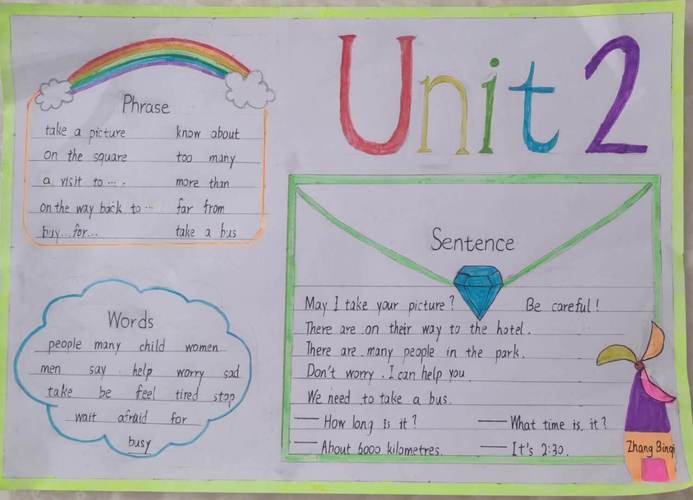 Unit 2
Phrase
take a picture know about
on the square too many
a visit to ... . more than
on the way back to ... far from
buy...for... take a bus
Sentence
May I take your picture? Be careful!
There are on their way to the hotel.
There are many people in the park.
Don't worry. I can help you
We need to take a bus.
— How long is it? — What time is it?
— About 6000 kilometres. — It's 2:30.
Words
people many child women
men say help worry sad
take be feel tired stop
wait afraid for
busy
Zhang Binqi